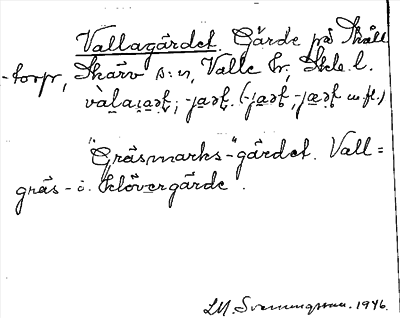 Vallagärdet. Gärde på Skåll
-torp, Skärv s:n, Valle hr, Skb. l.
"Gräsmarks-"gärdet. Vall=
gräs- i. klövergärde".
L.M. Svenungsson. 1946.